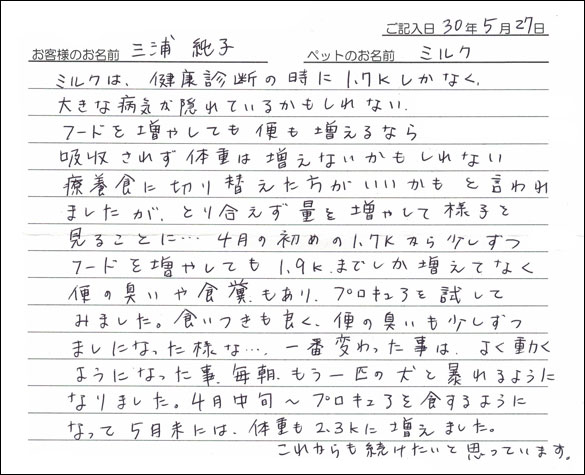 ご記入日 30年5月27日
お客様のお名前 三浦 純子 ペットのお名前 ミルク
ミルクは、健康診断の時に1.7Kしかなく、
大きな病気が隠れているかもしれない.
フードを増やしても便も増えるなら
吸収されず体重は増えないかもしれない
療養食に切り替えた方がいいかもと言われ
ましたが、とり合えず量を増やして様子を
見ることに… 4月の初めの1.7Kから少しずつ
フードを増やしても1.9K.までしか増えてなく
便の臭いや食糞もあり、プロキュアを試して
みました。食いつきも良く、便の臭いも少しずつ
ましになった様な…. 一番変わった事は、よく動く
ようになった事、毎朝、もう一匹の犬と暴れるように
なりました。4月中旬～プロキュアを食するように
なって5月末には、体重も2.3Kに増えました。
これからも続けたいと思っています。